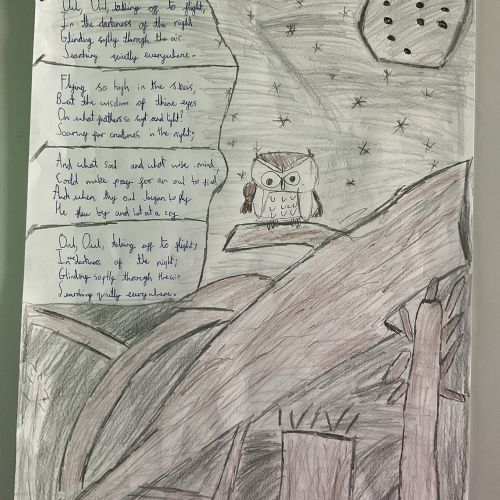 Owl, Owl, taking off to flight,
In the darkness of the night
Glinding softly through the air
Searching quietly everywhere.
Flying so high in the skeis,
Burnt the wisdom of thine eyes
On what feathers so light and light?
Soaring for creatures in the night;
And what soul and what wise mind
Could make pray for an owl to find
And when thy owl began to fly
He flew by and let out a cry
Owl, Owl, taking off to flight;
In darkness of the night;
Glinding softly through the air
Searching quietly everywhere.